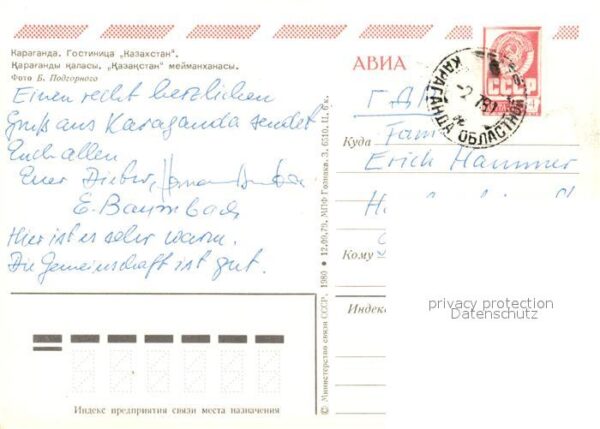 Караганда. Гостиница „Казахстан“.
Қарағанды қаласы. „Қазақстан“ мейманханасы.
Фото Б. Подгорного
Einen recht herzlichen
Gruß aus Karaganda sendet
Euch allen
Euer Dieter,
E. Baumbach
Hier ist es sehr warm.
Die Gemeinschaft ist gut.
Индекс предприятия связи места назначения
© Министерство связи СССР. 1980 • 12.09.79. МПФ Гознака. З. 6510, Ц. 6 к.
АВИА
СССР
КАРАГАНДА ОБЛАСТНОЙ
ГД
Куда Fam
Erich Hammer
Кому
Индекс
privacy protection
Datenschutz